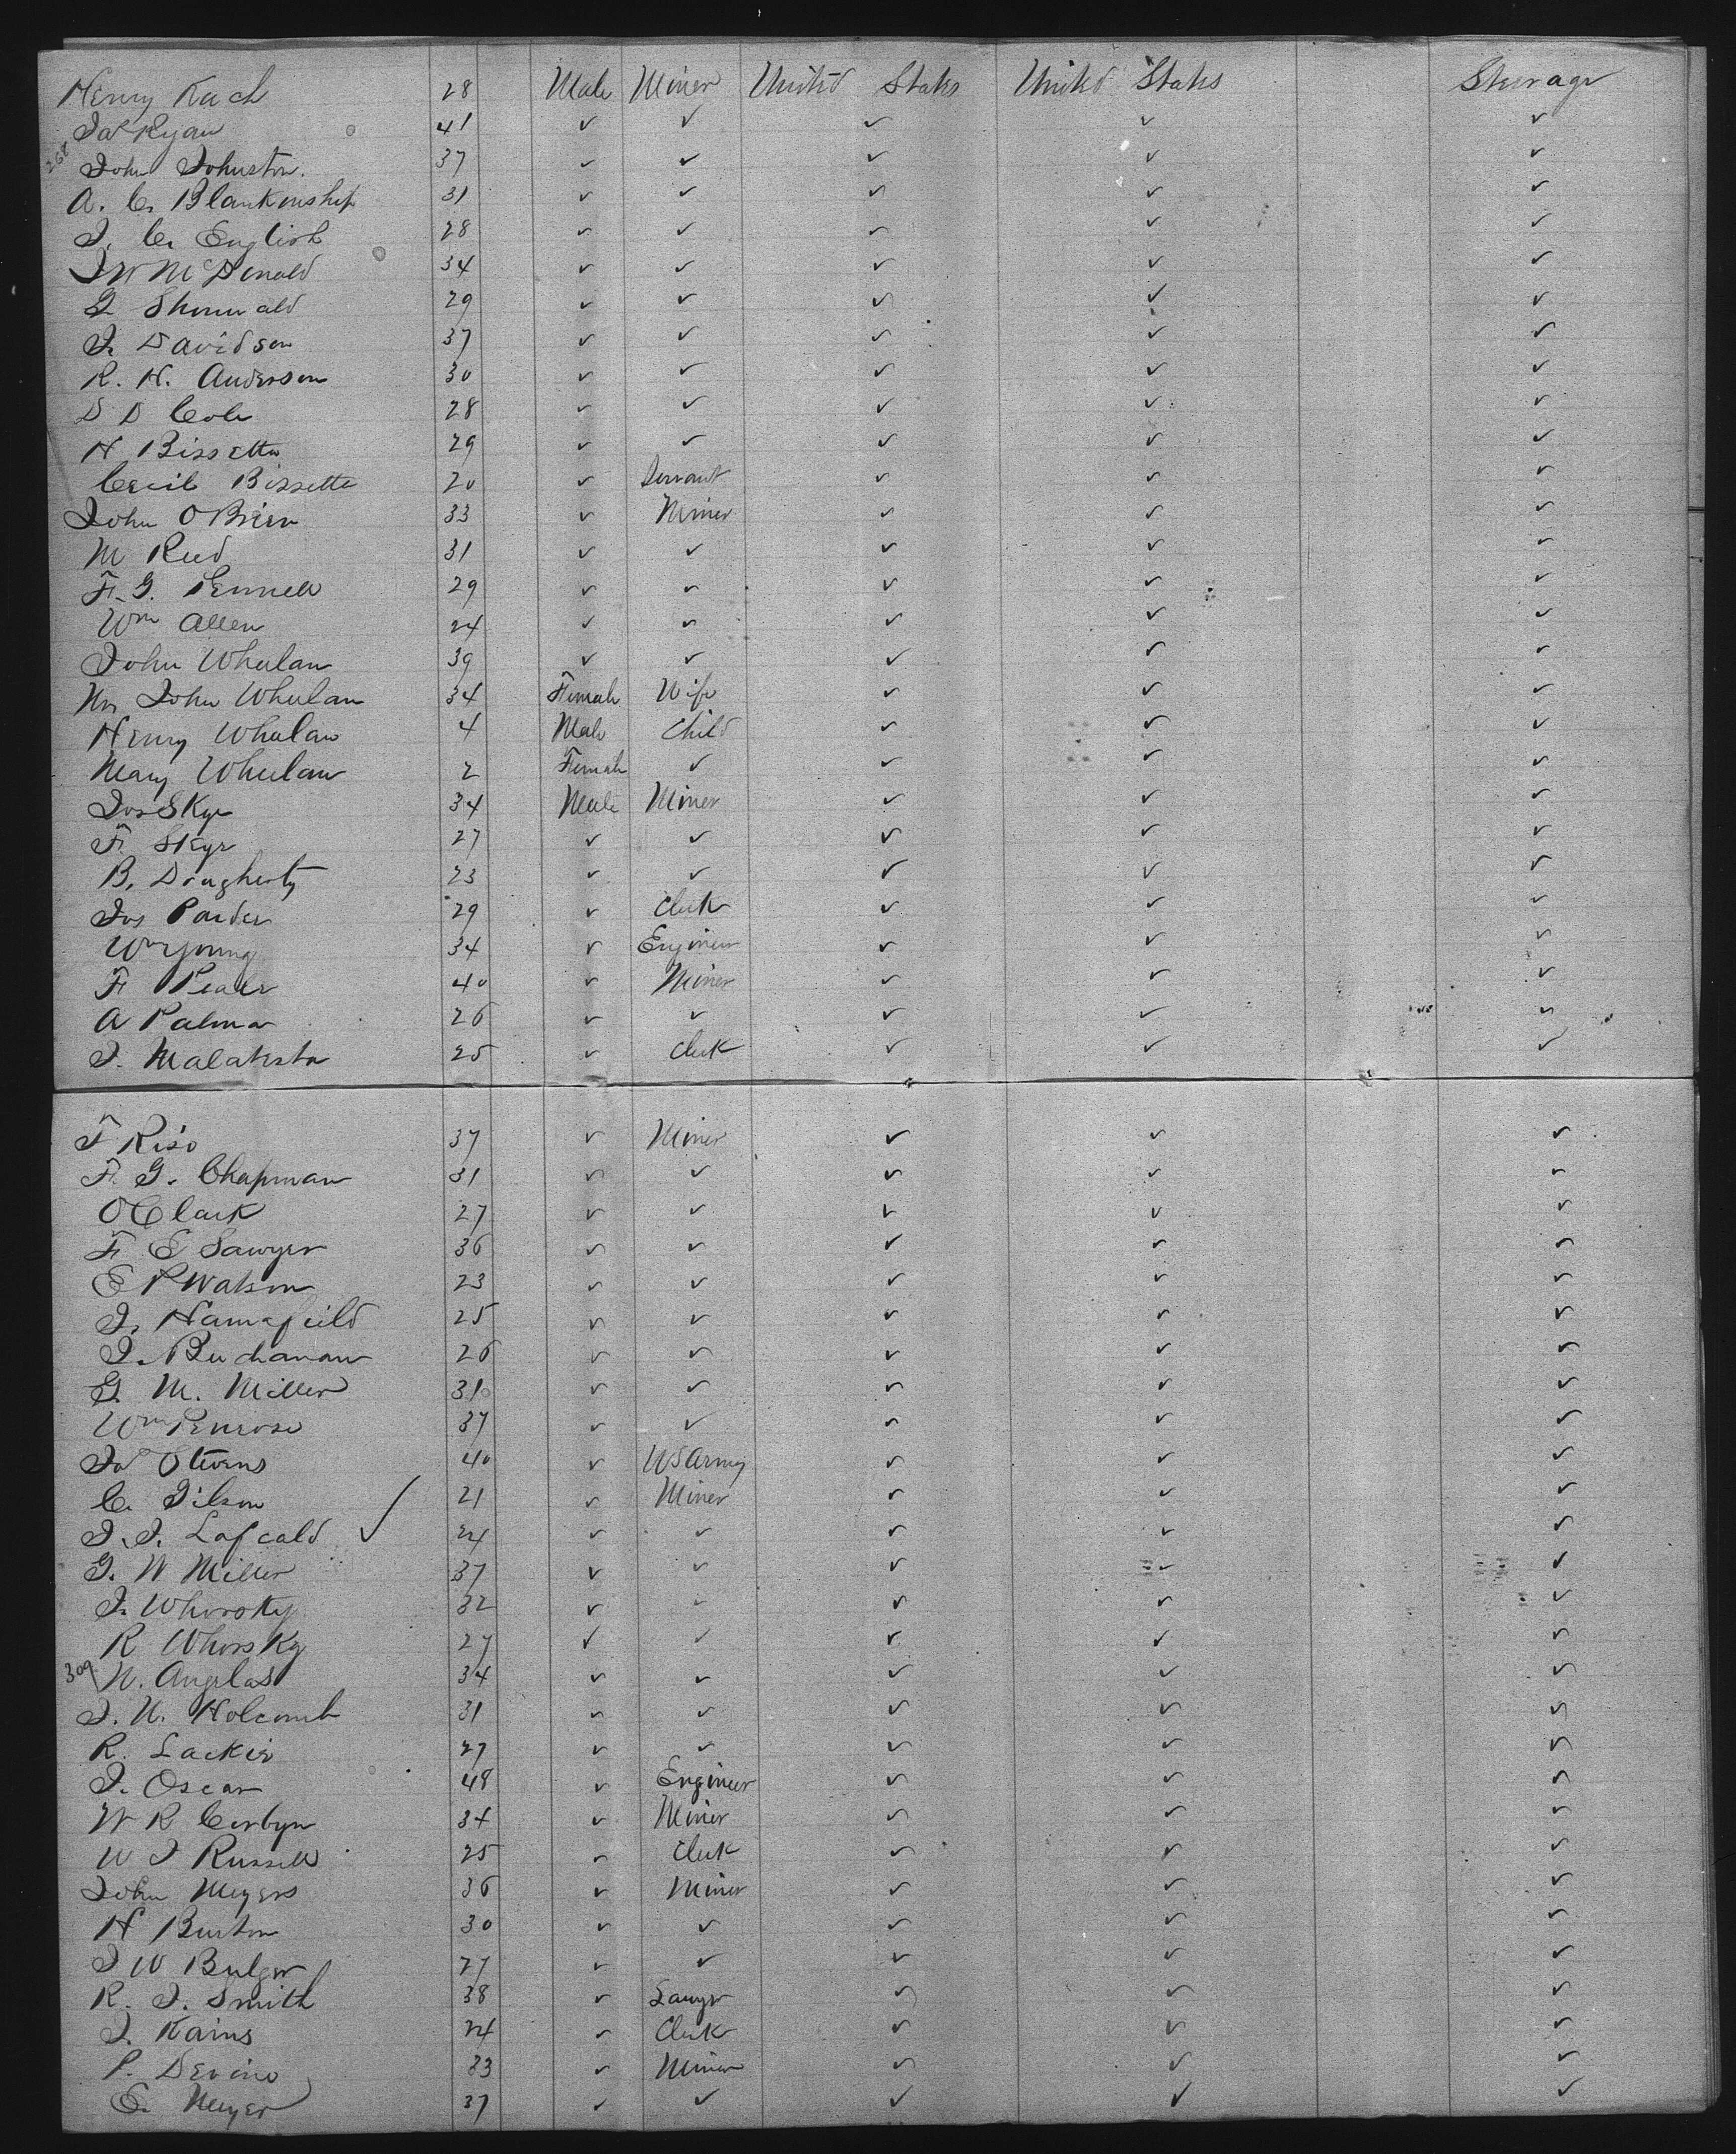 Henry Kach 28 Male Miner United States United States Steerage
Jas Ryan 41 ✓ ✓ ✓ ✓ ✓
268 John Johnston. 37 ✓ ✓ ✓ ✓ ✓
A. C. Blankenship 31 ✓ ✓ ✓ ✓ ✓
J. C. English 28 ✓ ✓ ✓ ✓ ✓
J W McDonald 34 ✓ ✓ ✓ ✓ ✓
29 ✓ ✓ ✓ ✓ ✓
J. Davidson 37 ✓ ✓ ✓ ✓ ✓
R. H. Anderson 30 ✓ ✓ ✓ ✓ ✓
D D Cole 28 ✓ ✓ ✓ ✓ ✓
H Bissette 29 ✓ ✓ ✓ ✓ ✓
Cecil Bissette 20 ✓ Servant ✓ ✓ ✓
John OBrien 33 ✓ Miner ✓ ✓ ✓
M Reed 31 ✓ ✓ ✓ ✓ ✓
F. G. Pennell 29 ✓ ✓ ✓ ✓ ✓
Wm Allen 24 ✓ ✓ ✓ ✓ ✓
John Wheelan 39 ✓ ✓ ✓ ✓ ✓
Mrs John Wheelan 34 Female Wife ✓ ✓ ✓
Henry Wheelan 4 Male Child ✓ ✓ ✓
Mary Wheelan 2 Female ✓ ✓ ✓ ✓
Jos Skye 34 Male Miner ✓ ✓ ✓
F. Skye 27 ✓ ✓ ✓ ✓ ✓
B. Dougherty 23 ✓ ✓ ✓ ✓ ✓
Jos Parder 29 ✓ Clerk ✓ ✓ ✓
Wm Young 34 ✓ Engineer ✓ ✓ ✓
F 40 ✓ Miner ✓ ✓ ✓
A Palma 26 ✓ ✓ ✓ ✓ ✓
J. Malatesta 25 ✓ Clerk ✓ ✓ ✓
F Riso 37 ✓ Miner ✓ ✓ ✓
F. G. Chapman 31 ✓ ✓ ✓ ✓ ✓
O Clark 27 ✓ ✓ ✓ ✓ ✓
F E Sawyer 36 ✓ ✓ ✓ ✓ ✓
E P Watson 23 ✓ ✓ ✓ ✓ ✓
J. Hannafield 25 ✓ ✓ ✓ ✓ ✓
J. Buchanan 26 ✓ ✓ ✓ ✓ ✓
G. M. Miller 31 ✓ ✓ ✓ ✓ ✓
Wm Penrose 37 ✓ ✓ ✓ ✓ ✓
Jas Stevens 40 ✓ US Army ✓ ✓ ✓
C. Gilson 21 ✓ Miner ✓ ✓ ✓
J. J. Lafcald ✓ 24 ✓ ✓ ✓ ✓ ✓
G. W Miller 37 ✓ ✓ ✓ ✓ ✓
J. Whorsky 32 ✓ ✓ ✓ ✓ ✓
R Whorsky 27 ✓ ✓ ✓ ✓ ✓
309 N. Angelas 34 ✓ ✓ ✓ ✓ ✓
J. N. Holcomb 31 ✓ ✓ ✓ ✓ ✓
R. Lackie 27 ✓ ✓ ✓ ✓ ✓
J. Oscar 48 ✓ Engineer ✓ ✓ ✓
W R Corbyn 34 ✓ Miner ✓ ✓ ✓
W J Russell 25 ✓ Clerk ✓ ✓ ✓
John Meyers 36 ✓ Miner ✓ ✓ ✓
H Burton 30 ✓ ✓ ✓ ✓ ✓
J W Bulger 27 ✓ ✓ ✓ ✓ ✓
R. J. Smith 38 ✓ Lawyer ✓ ✓ ✓
J. Kains 24 ✓ Clerk ✓ ✓ ✓
P. Devino 33 ✓ Miner ✓ ✓ ✓
E. Meyer 37 ✓ ✓ ✓ ✓ ✓